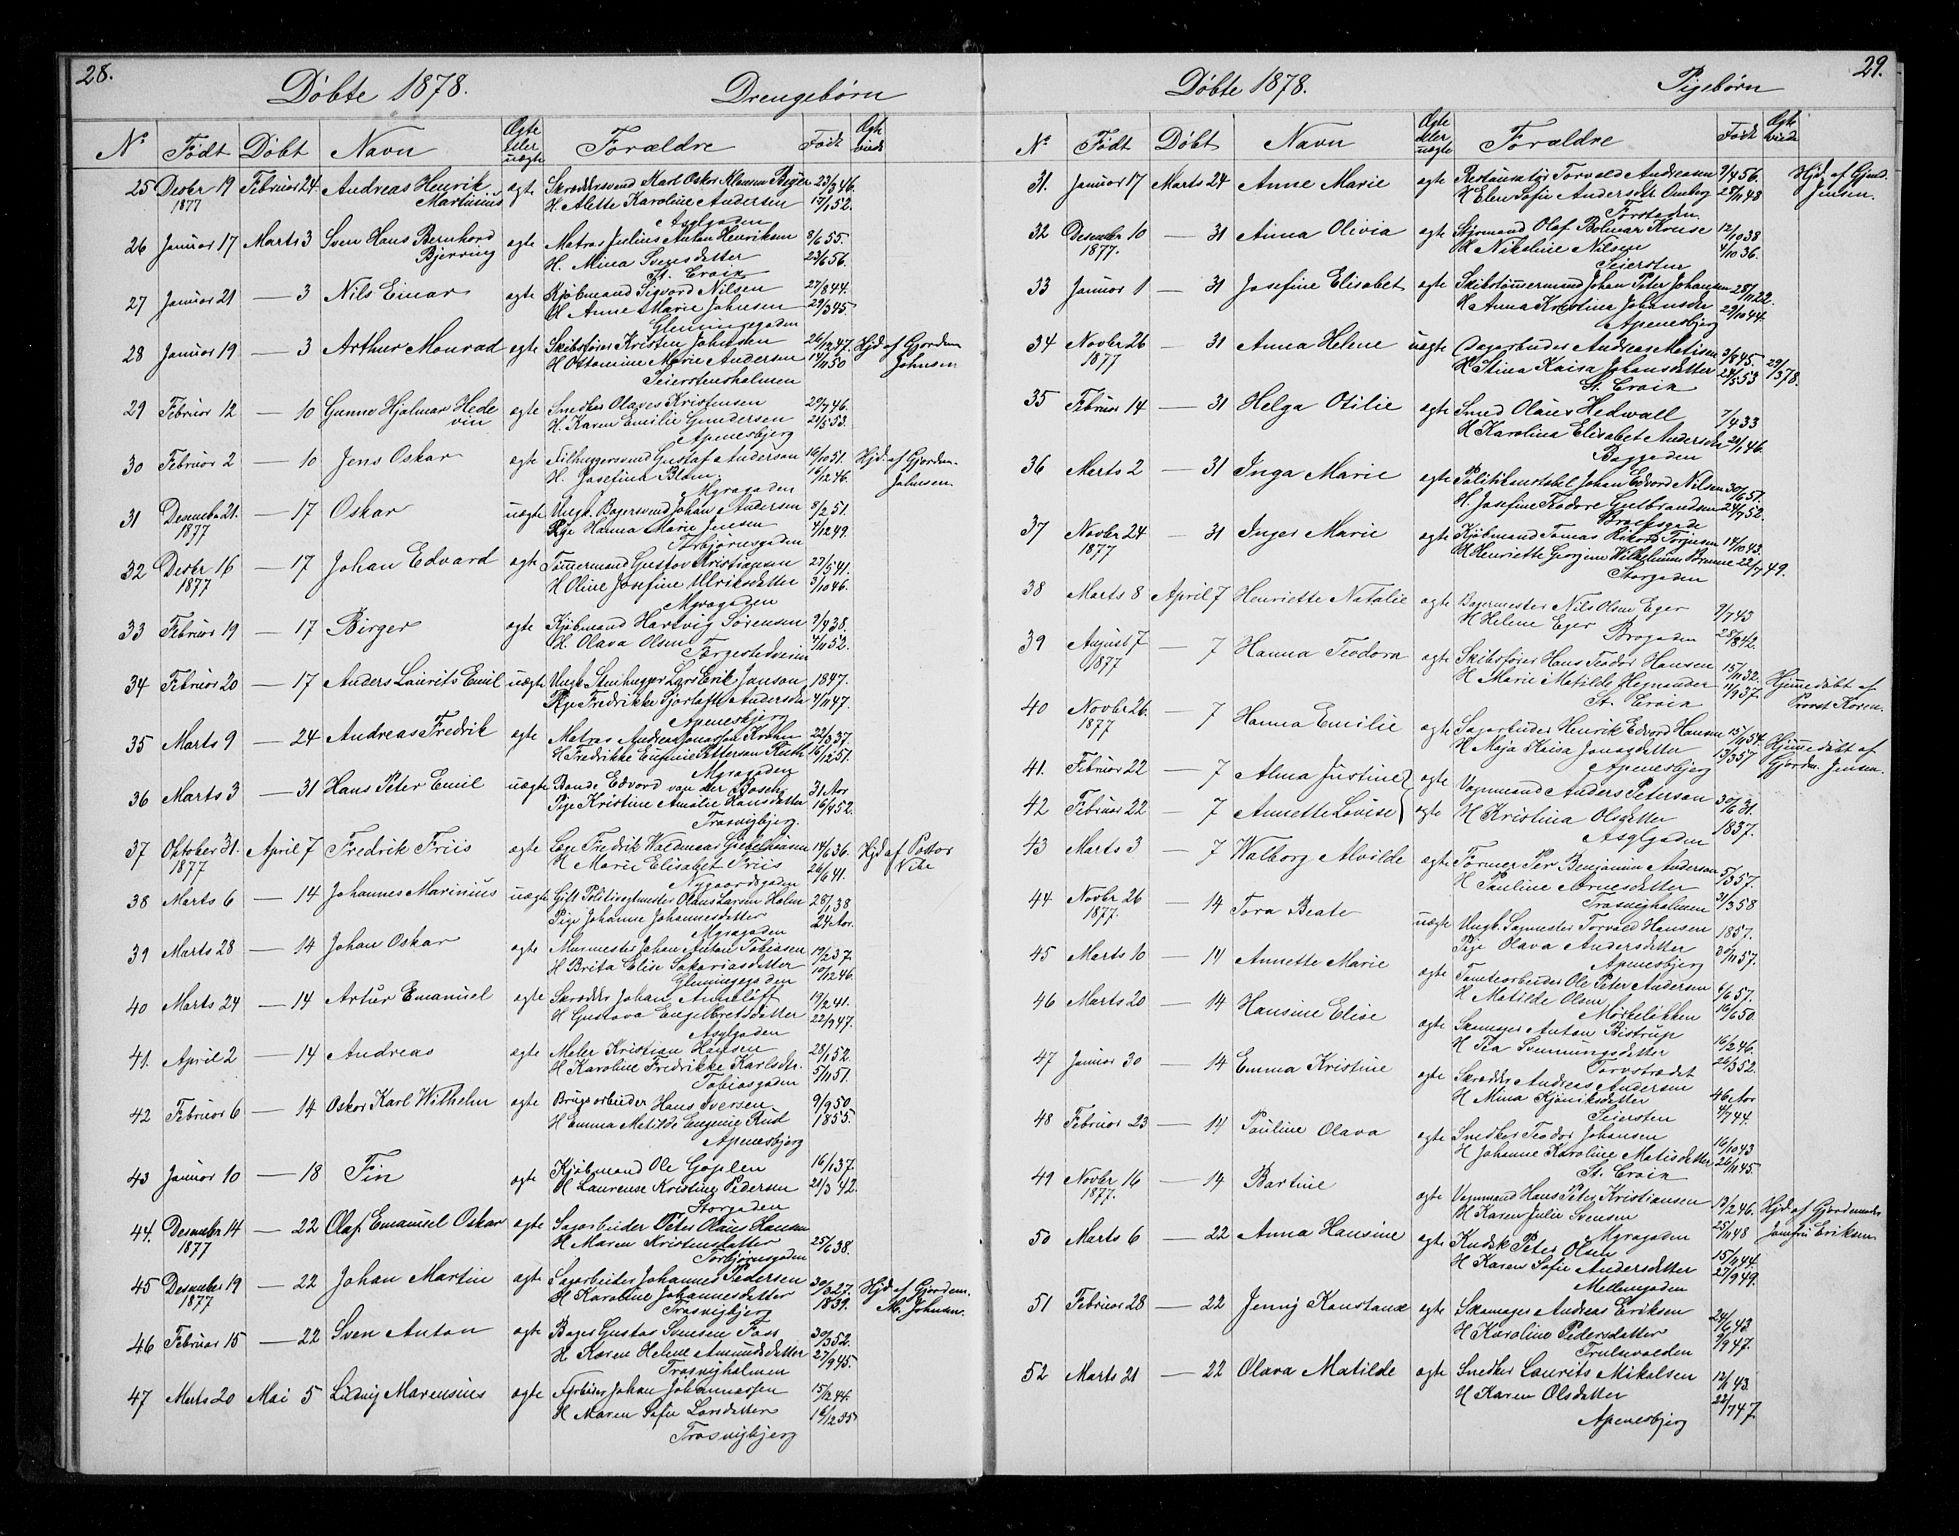 28.
Döbte 1878. Drengebörn
No Födt Döbt Navn Ægte eller uægte Forældre Födt Ægtevied
25 Desbr 19 Februar 24 Andreas Henrik ægte Skræddersvend Karl Oskar Klausen 23/3 46.
1877 Martinius H. Alette Karoline Andersen 17/1 52.
Asylgaden
26 Januar 17 Marts 3 Sven Hans Bernhard ægte Matros Julius Anton Henriksen 8/6 55.
Bjerring H. Mina Svensdatter 23/6 56.
St. Croix
27 Januar 21 — 3 Nils Einar ægte Kjöbmand Sigvard Nilsen 27/8 44.
H Anne Marie Johnsen 29/3 45.
Glemmingegaden
28 Januar 19 — 3 Arthur Monrad ægte Skibsförer Kristen Johnsen 26/12 47. Hjd. af Gjordem
H Ottomine Marie Andersen 14/11 50 Johnsen
Seierstensholmen
29 Februar 12 — 10 Gunno Hjalmar Hede ægte Snedker Olaves Kristensen 29/7 46.
vin H. Karen Emilie Gundersen 21/5 53.
Apenesbjerg
30 Februar 2 — 10 Jens Oskar ægte Filhuggersvend Gustaf Anderson 16/10 51. Hjd. af Gjordem.
H. Josefina Blom 16/12 46. Johnsen.
Myragaden
31 Desember 21. — 17 Oskar uægte Ungk. Bagersvend Johan Andersen 8/2 51.
1877 Pige Hanna Marie Jensen 4/12 49.
Torbjörnsgaden
32 Desbr 16 — 17 Johan Edvard ægte Tömmermand Gustav Kristiansen 27/5 41.
1877 H Oline Josefine Ulriksdatter 5/10 46.
Myragaden
33 Februar 19 — 17 Birger ægte Kjöbmand Hartvig Sörensen 2/9 38.
H. Olava Olsen 4/11 52.
Færgestedveien
34 Februar 20 — 17 Anders Laurits Emil uægte Ungk. Stenhugger Lars Erik Janson 1847.
Pige Fredrikke Andersdtr 4/11 47.
Apenesbjerg
35 Marts 9 — 24 Andreas Fredrik ægte Matros Andreas Jonassen 22/3 37.
H Fredrikke Eugenie Pettersen 16/12 51.
Myragaden
36 Marts 3 — 31 Hans Peter Emil uægte Bonde Edvard van der Bosch 31 Aar
Pige Kristine Amalie Hansdatter 16/4 52.
Trosvigbjerg.
37 Oktober 31. April 7 Fredrik Friis ægte Læge Fredrik Waldemar 14/6 36. Hjd af Pastor
1877 H Marie Elisabet Friis 26/6 41. Vibe
Nygaardsgaden
38 Marts 6 — 14 Johannes Marinius uægte Gift Politivagtmester Olaus Larsen Holm 28/1 38
Pige Johanne Johannesdatter 24 Aar.
Myragaden
39 Marts 28 — 14 Johan Oskar ægte Murmester Johan Anton Tobiasen 19/2 37.
H Brita Elise Sakariasdatter 10/12 46.
Glemmingegaden
40 Marts 24 — 14 Artur Emanuel ægte Skrædder Johan 19/2 41.
H Gustava Engelbretsdatter 22/9 47.
Asylgaden
41. April 2 — 14 Andreas ægte Maler Kristian Hansen 28/1 52.
H Karoline Fredrikke Karlsdtr. 5/11 51.
Tobiasgaden
42 Februar 6 — 14 Oskar Karl Wilhelm ægte Brugsarbeider Hans Iversen 9/9 50.
H Emma Matilde Eugenie Rud 1855.
Apenesbjerg
43 Januar 10 — 18 Fin ægte Kjöbmand Ole Goplen 16/1 37.
H Laurense Kristine Pedersen 21/3 42.
Storgaden
44. Desember 14 — 22 Olaf Emanuel Oskar ægte Sagarbeider Peter Olaus Hansen
1877 H Maren Kristensdatter 25/6 38.
Torbjörnsgaden
45 Desember 19 — 22 Johan Martin ægte Sagarbeider Johannes Pedersen 30/3 27. Hjd. af Gjordem.
1877 H Karoline Johannesdatter 1839. M. Johnsen.
Trosvigbjerg
46 Februar 15 — 22 Sven Anton ægte Bager Gustav Svensen Foss 30/3 52.
H Karen Helene Amundsdatter 27/9 45.
Trosvigholmen
47 Marts 20 Mai 5 Ludvig Marensius ægte Johan Johannessen 15/2 44.
H Maren Sofie Larsdatter 16/12 35
Trosvigbjerg
29.
Döbte 1878. Pigebörn
No Födt Döbt Navn Ægte eller uægte Forældre Födt Ægtevied
31. Januar 17 Marts 24 Anne Marie ægte Restauratör Torvald Andreasen 9/4 56. Hjd. af Gjord.
H Elen Sofie Andersdtr Omberg 28/11 48 Jensen.
Forstaden
32 Desember 10 — 31 Anna Olivia ægte Styrmand Olaf Bolivar Kruse 12/10 38
1877. H Nikoline Nilsen 4/10 36.
Seiersten
33 Januar 1 — 31 Josefine Elisabet ægte Skibstömmermand Johan Peter Johansen 28/11 22.
H Anna Kristina Johansdtr 29/10 44.
Apenesbjerg
34 Novbr 26 — 31 Anna Helene uægte Sagarbeider Andreas Matisen 3/8 45. 29/3 78.
1877 H Stina Kaisa Johansdatter 24/5 53
St. Croix
35 Februar 14 — 31 Helga Otilie ægte Smed Olaus Hedwall 7/4 33
H Karolina Elisabet Andersdtr 21/1 46.
Baggaden
36 Marts 2 — 31 Inga Marie ægte Politikonstabel Johan Edvard Nilsen 30/6 51.
H. Josefine Teodora Gulbrandsen 24/7 52.
Brochsgade
37 Novbr 24 — 31 Inger Marie ægte Kjöbmand Tomas Rikard Torgersen 14/10 43.
1877 H Henriette Georgine Wilhelmine 22/7 49.
Storgaden
38 Marts 8 April 7 Henriette Natalie ægte Bagermester Nils Olsen Eger 9/7 43
H Helene Eger 28/8 42.
Brogaden
39 August 7 — 7 Hanna Teodora ægte Skibsförer Hans Teodor Hansen 15/11 32. Hjemmedöbt af
1877 H Marie Matilde 11/9 37. Provst Koren.
St. Croix
40 Novbr 26. — 7 Hanna Emilie ægte Sagarbeider Henrik Edvard Hansen 15/11 54. Hjemmedöbt af
1877 H Maja Kaisa Jonasdatter 13/3 57 Gjordm. Jensen.
Apenesbjerg
41. Februar 22 — 7 Alma Justine ægte Vognmand Anders Peterson 30/6 31.
42 Februar 22 — 7 Annette Lovise ægte H Kristina Olsdatter 1837.
Asylgaden
43 Marts 3 — 7 Walborg Alvilde ægte Former Per Benjamin Anderson 5/3 57.
H Pauline Arnesdatter 31/3 58
Trosvigholmen
44 Novbr 26 — 14 Tora Beate uægte Ungk. Sagmester Torvald Hansen 1857.
1877. Pige Olava Andersdatter 30/11 57.
Apenesbjerg
45 Marts 10 — 14 Annette Marie ægte Tomtearbeider Ole Peter Andersen 6/6 57.
H Matilde Olsen 16/6 50.
Mörbelökken
46 Marts 20 — 14 Hansine Elise ægte Skomager Anton Bistrup 16/2 46.
H Pea Svenningsdatter 26/3 52.
Torvstrædet
47 Januar 30 — 14 Emma Kristine ægte Skrædder Andreas Andersen 46 Aar
H Mina Kjöniksdatter 4/7 44.
Seiersten
48 Februar 23 — 14 Pauline Olava ægte Snedker Teodor Johansen 16/10 43
H Johanne Karoline Matisdatter 26/11 45.
St. Croix
49 Novbr 16 — 14 Bartine ægte Vognmand Hans Peter Kristiansen 19/2 46. Hjd. af Gjordemoder
1877. H Karen Julie Svensen 25/11 48 Jomfru Eriksen
Myragaden
50 Marts 6 — 22 Anna Hansine ægte Kudsk Peter Olsen 15/11 44.
H Karen Sofie Andersdatter 27/9 49.
Mellemgaden
51 Februar 28 — 22 Jenny Konstanse ægte Skomager Andreas Eriksen 24/6 43
H Karoline Pedersdatter 9/9 47.
Trulsevolden
52 Marts 21 — 22 Olava Matilde ægte Snedker Laurits Mikelsen 12/6 43.
H Karen Olsdatter 22/7 47.
Apenesbjerg